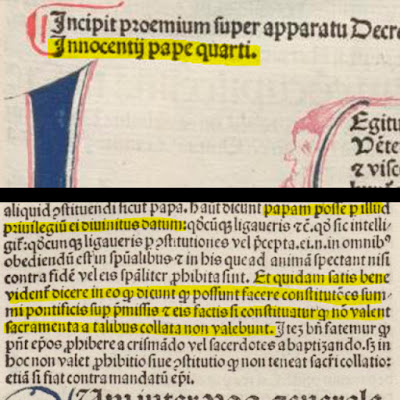 Incipit proemium super apparatu Decre
Innocentij pape quarti.
Egitu
Vẽte
⁊ visc
aliquid ꝯstituendi sicut papa. Haut dicunt papam posse ꝑ illud
priuilegiũ ei diuinitus datum: qõcũqꝫ ligaueris ⁊cͣ. qõ sic intelli
git̃: qõcunqꝫ ligaueris ꝑ ꝯstitutiones vel p̃cepta. ei. n. in omnibꝰ
obediendũ est in spũalibus ⁊ in his que ad animã spectant nisi
contra fidẽ vel eis spãliter ꝓhibita sint. Et quidam satis bene
vident̃ dicere in eo ꝙ dicunt ꝙ possunt facere constitutiões sum
mi pontificis sup p̃missis ⁊ eis factis si constituatur ꝙ nõ valent
sacramenta a talibus collata non valebunt. Itẽ bñ fatemur ꝙ
pñt ep̃os ꝓhibere a crismãdo vel sacerdotes a baptizando. sꝫ in
hoc non valet ꝓhibitio siue ꝯstitutio ꝙ non teneat sacr̃i collatio:
etiã si fiat contra mandatũ ep̃i.